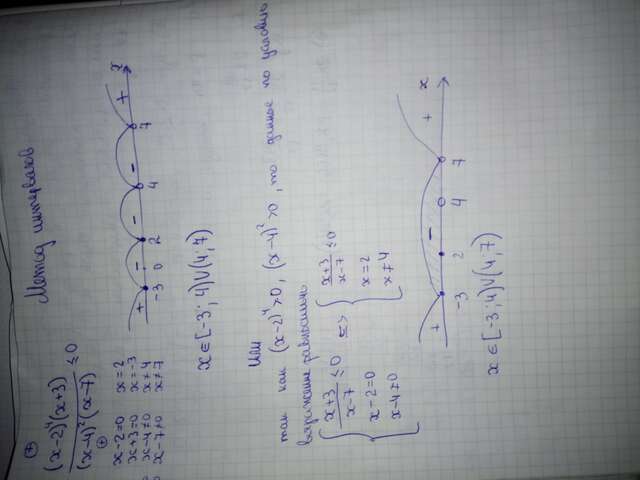 Метод интервалов
(+)
(x-2)⁴(x+3)
(x-4)²(x-7) ≤0
(+)
x-2=0 x=2
x+3=0 x=-3
x-4≠0 x≠4
x-7≠0 x≠7
+ - - - + x
-3 0 2 4 7
x∈[-3; 4)∪(4; 7)
Или
так как (x-2)⁴>0, (x-4)²>0, то данное по условию
выражение равносильно
x+3
x-7 ≤0
x-2=0
x-4≠0
<=>
x+3
x-7 ≤0
x=2
x≠4
+ - + x
-3 2 4 7
x∈[-3; 4)∪(4; 7)